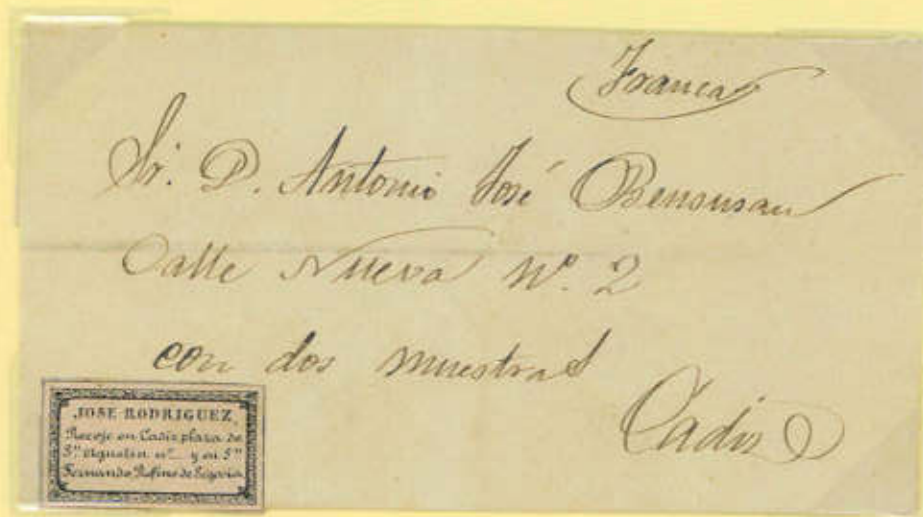 Franca
Sr. D. Antonio José Bensusan
Calle Nueva Nº. 2
con dos muestras
Cadiz
JOSE RODRIGUEZ,
Recoje en Cadiz plaza de
Sn. Agustin nº. y en Sn.
Fernando Rufino de Segovia